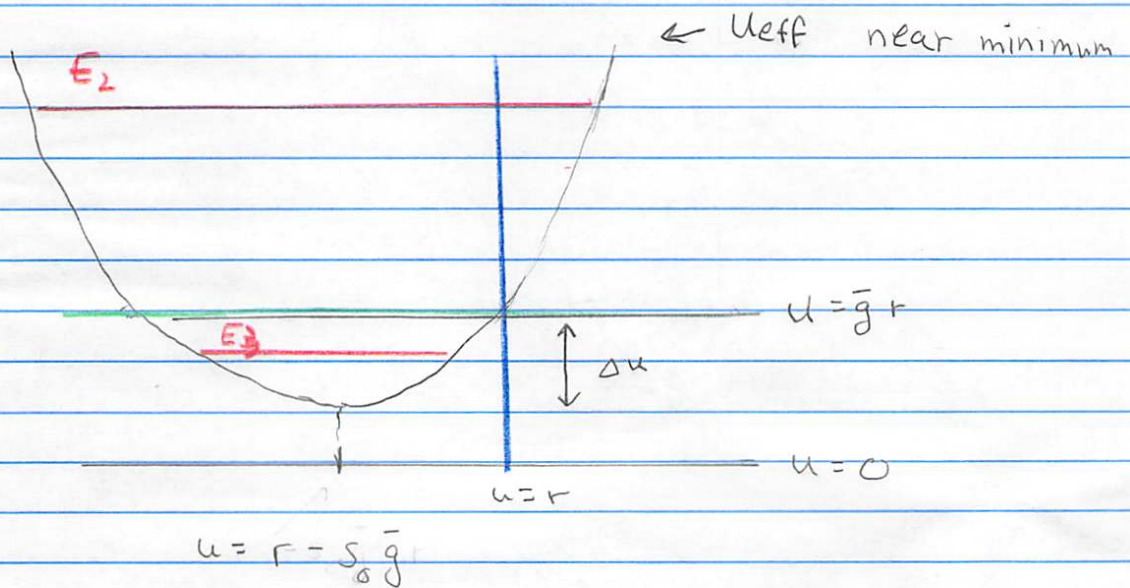 ← Ueff near minimum
E₂
U = ḡ r
Δu
U = 0
u = r
u = r - S₀ ḡ